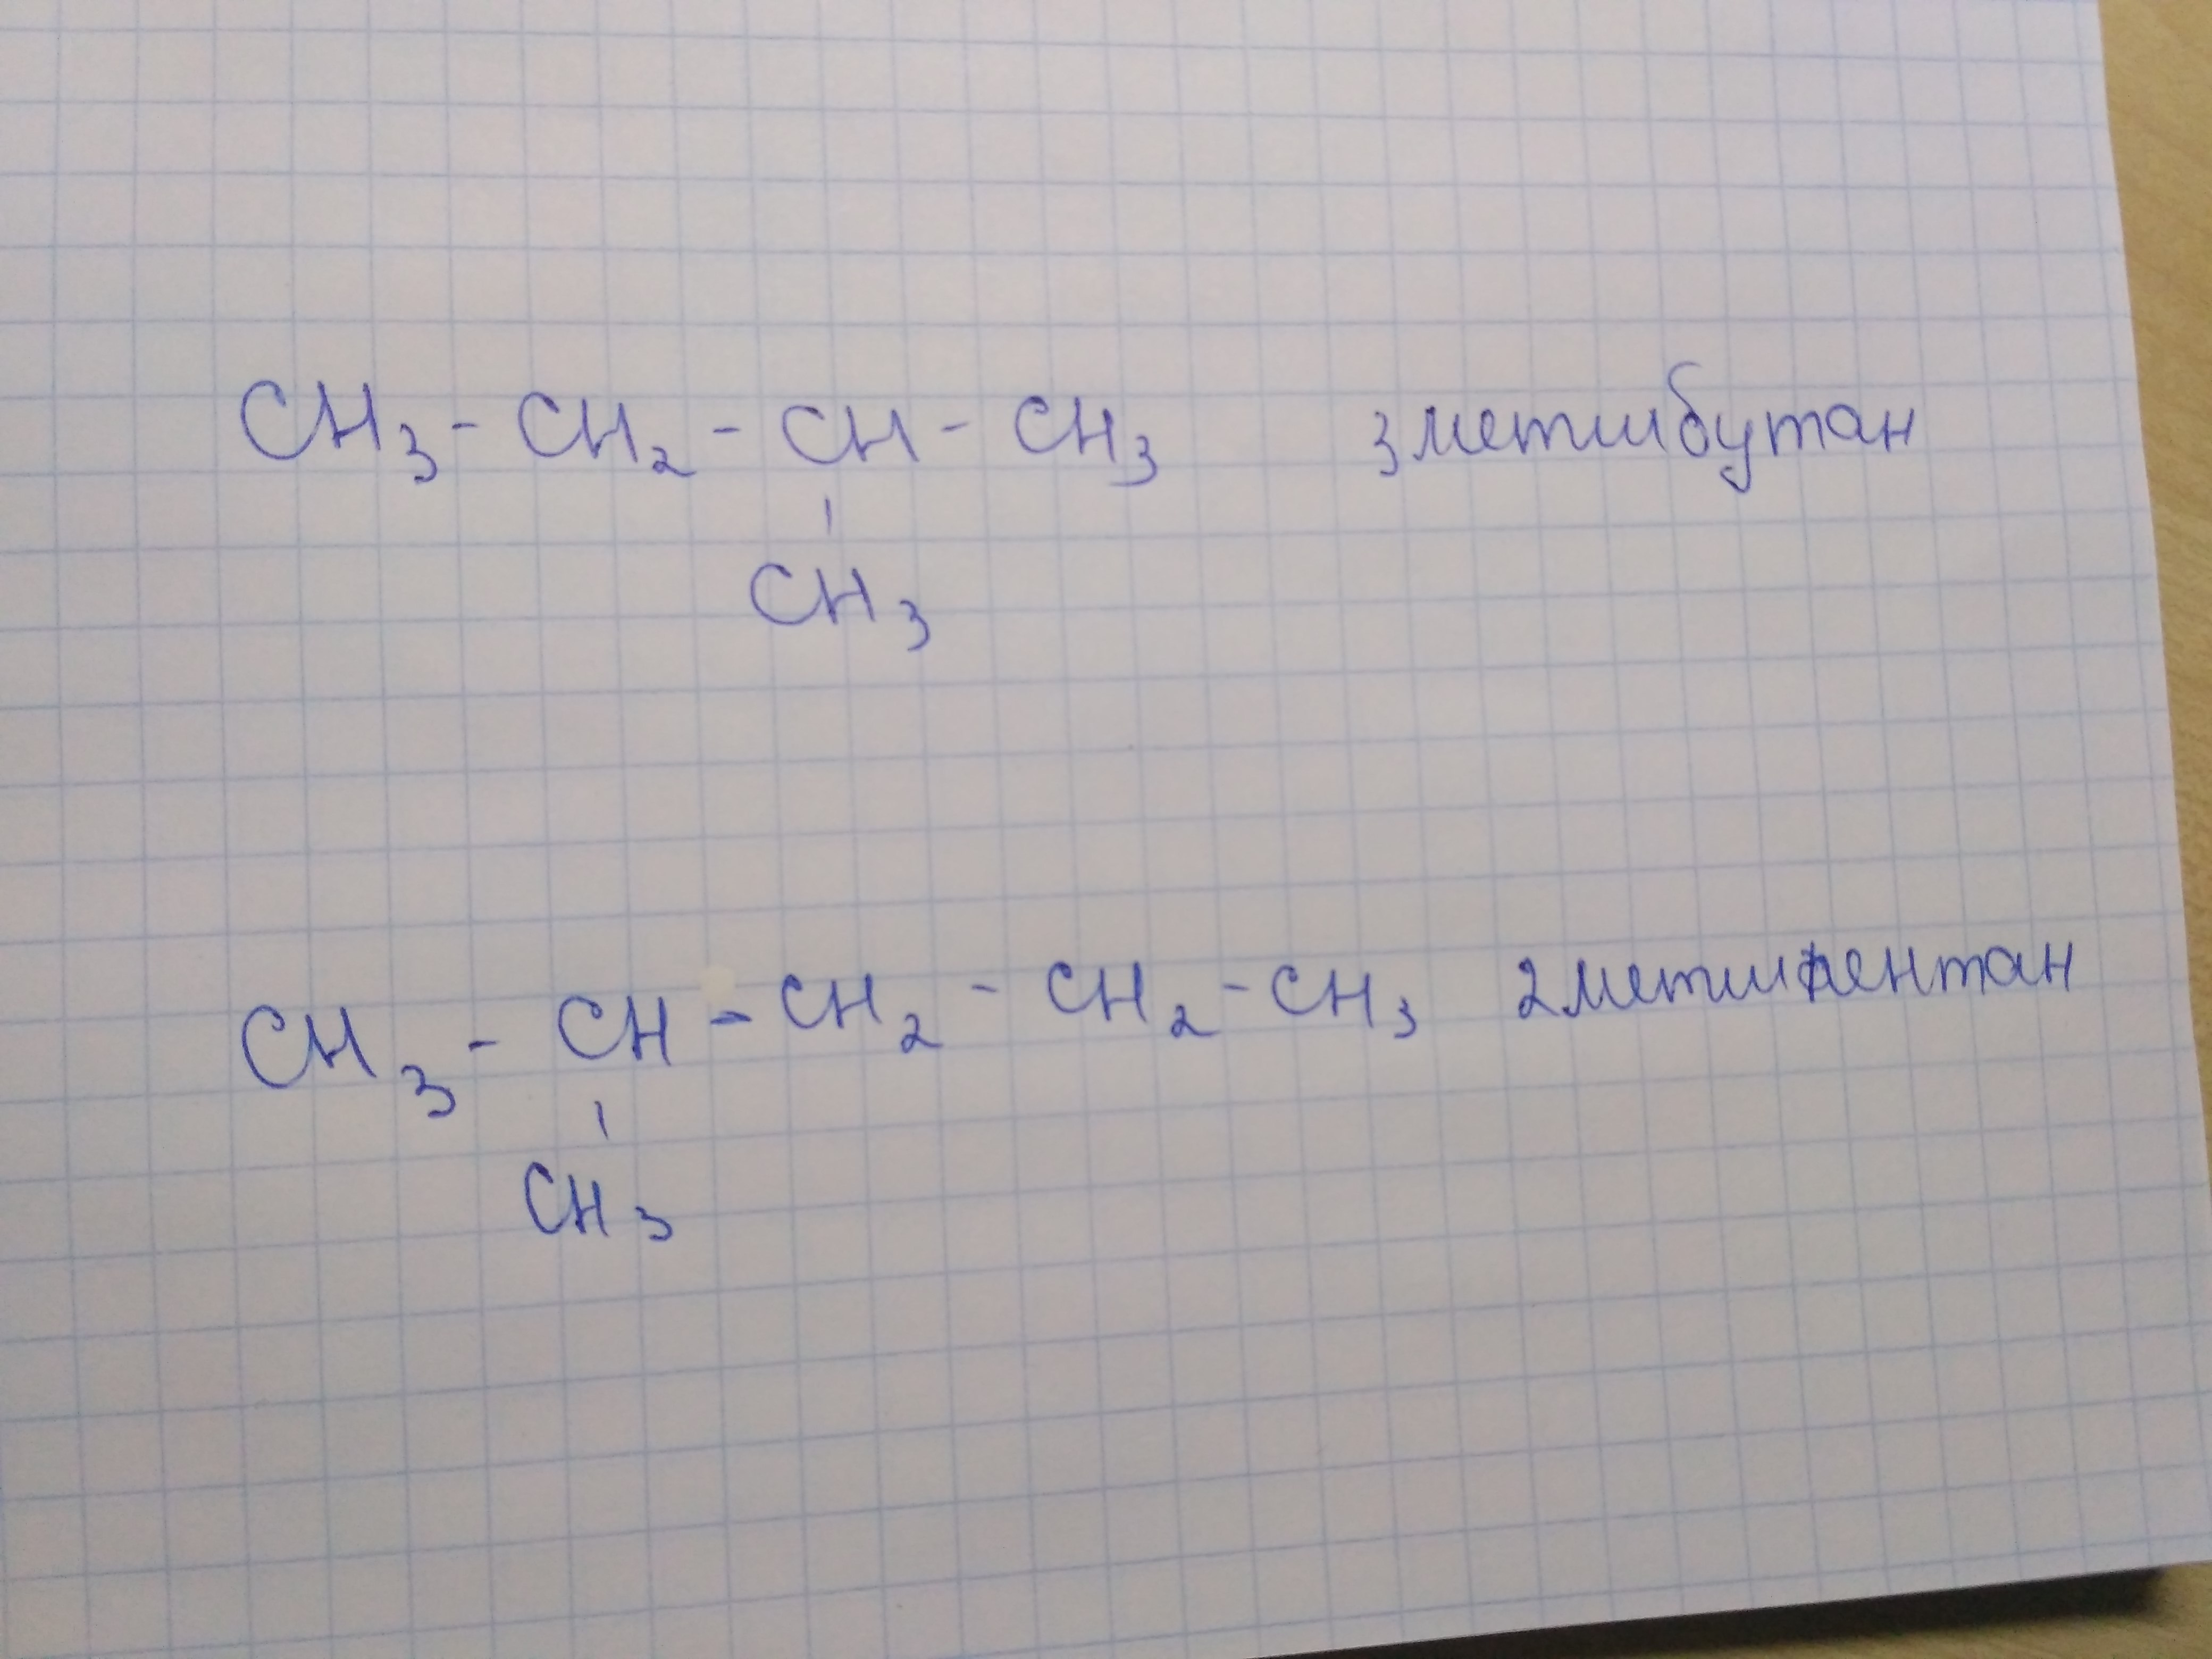 CH₃ - CH₂ - CH - CH₃ 3метилбутан
CH₃
CH₃ - CH - CH₂ - CH₂ - CH₃ 2метилпентан
CH₃